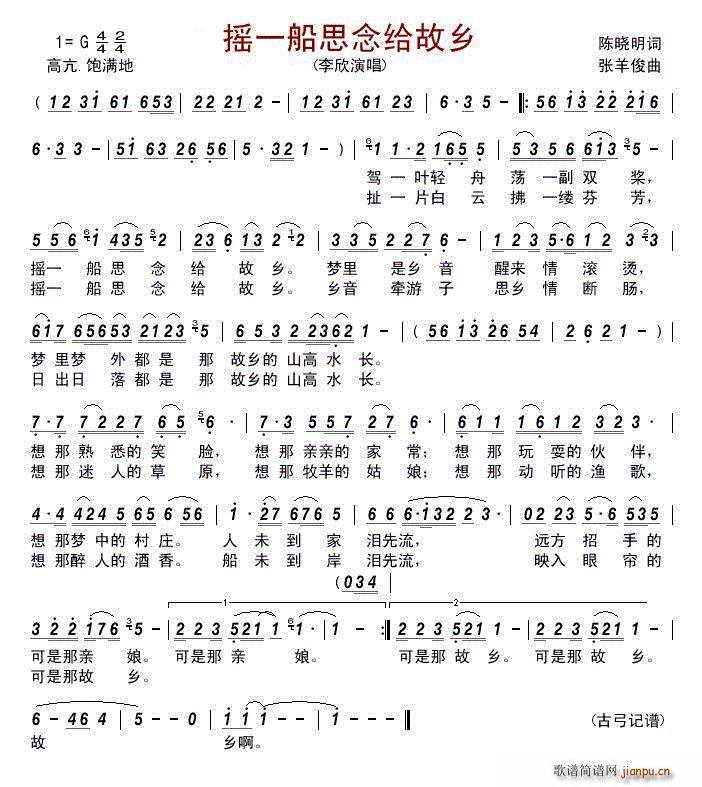 摇一船思念给故乡
1= G 4/4 2/4
高亢. 饱满地
(李欣演唱)
陈晓明词
张羊俊曲
( 12 31 61 653 | 2 22· 22 2 | 12 31 61 23 | 6·3 5 - |: 56 13 22 216 |
6·3 3 - | 51 63 26 56 | 5·32 1 - ) | 61 1·2 165 5 | 5 35 6 613 35 - |
驾一叶轻舟 荡一副双桨,
扯一片白云 拂一缕芬芳,
5 56 61 435 52 | 23 6 13 2 12 | 3 35 2 27 6 - | 1 23 5·612 3 33 |
摇一 船思念 给 故乡。 梦里 是乡音 醒来 情滚烫,
摇一 船思念 给 故乡。 乡音 牵游子 思乡 情断肠,
617 65653 2123 35 | 6 53 2 2362 1 - | ( 56 13 26 54 | 2 62 1 - ) |
梦里梦 外都是 那 故乡的山高水 长。
日出日 落都是 那 故乡的山高水 长。
7·7 7227 65 56· | 7·3 555 27 6 | 6·11 1612 323 |
想那熟悉的笑 脸, 想那亲亲的家 常; 想那玩耍的伙 伴,
想那迷人的草 原, 想那牧羊的姑 娘; 想那动听的渔 歌,
4·4 424 5 65 6 | 1·27 676 5 | 6 6·132 2 3 | 0 2 23 5·6 535 |
想那梦中的村庄。 人未到家 泪先流, 远方招手的
想那醉人的酒香。 船未到岸 泪先流, 映入眼帘的
(034)
1 2
3 22 176 35 - | 2 23 521 1 61· | 1 - :| 2 23 521 1 | 2 23 521 1 |
可是那亲 娘。 可是那亲 娘。 可是那故乡。 可是那故乡。
可是那故 乡。
6 - 46 4 | 5 - 5 0 | 1 11 1 - | 1 - ‖
故 乡啊。
(古弓记谱)
歌谱简谱网
jianpu.cn